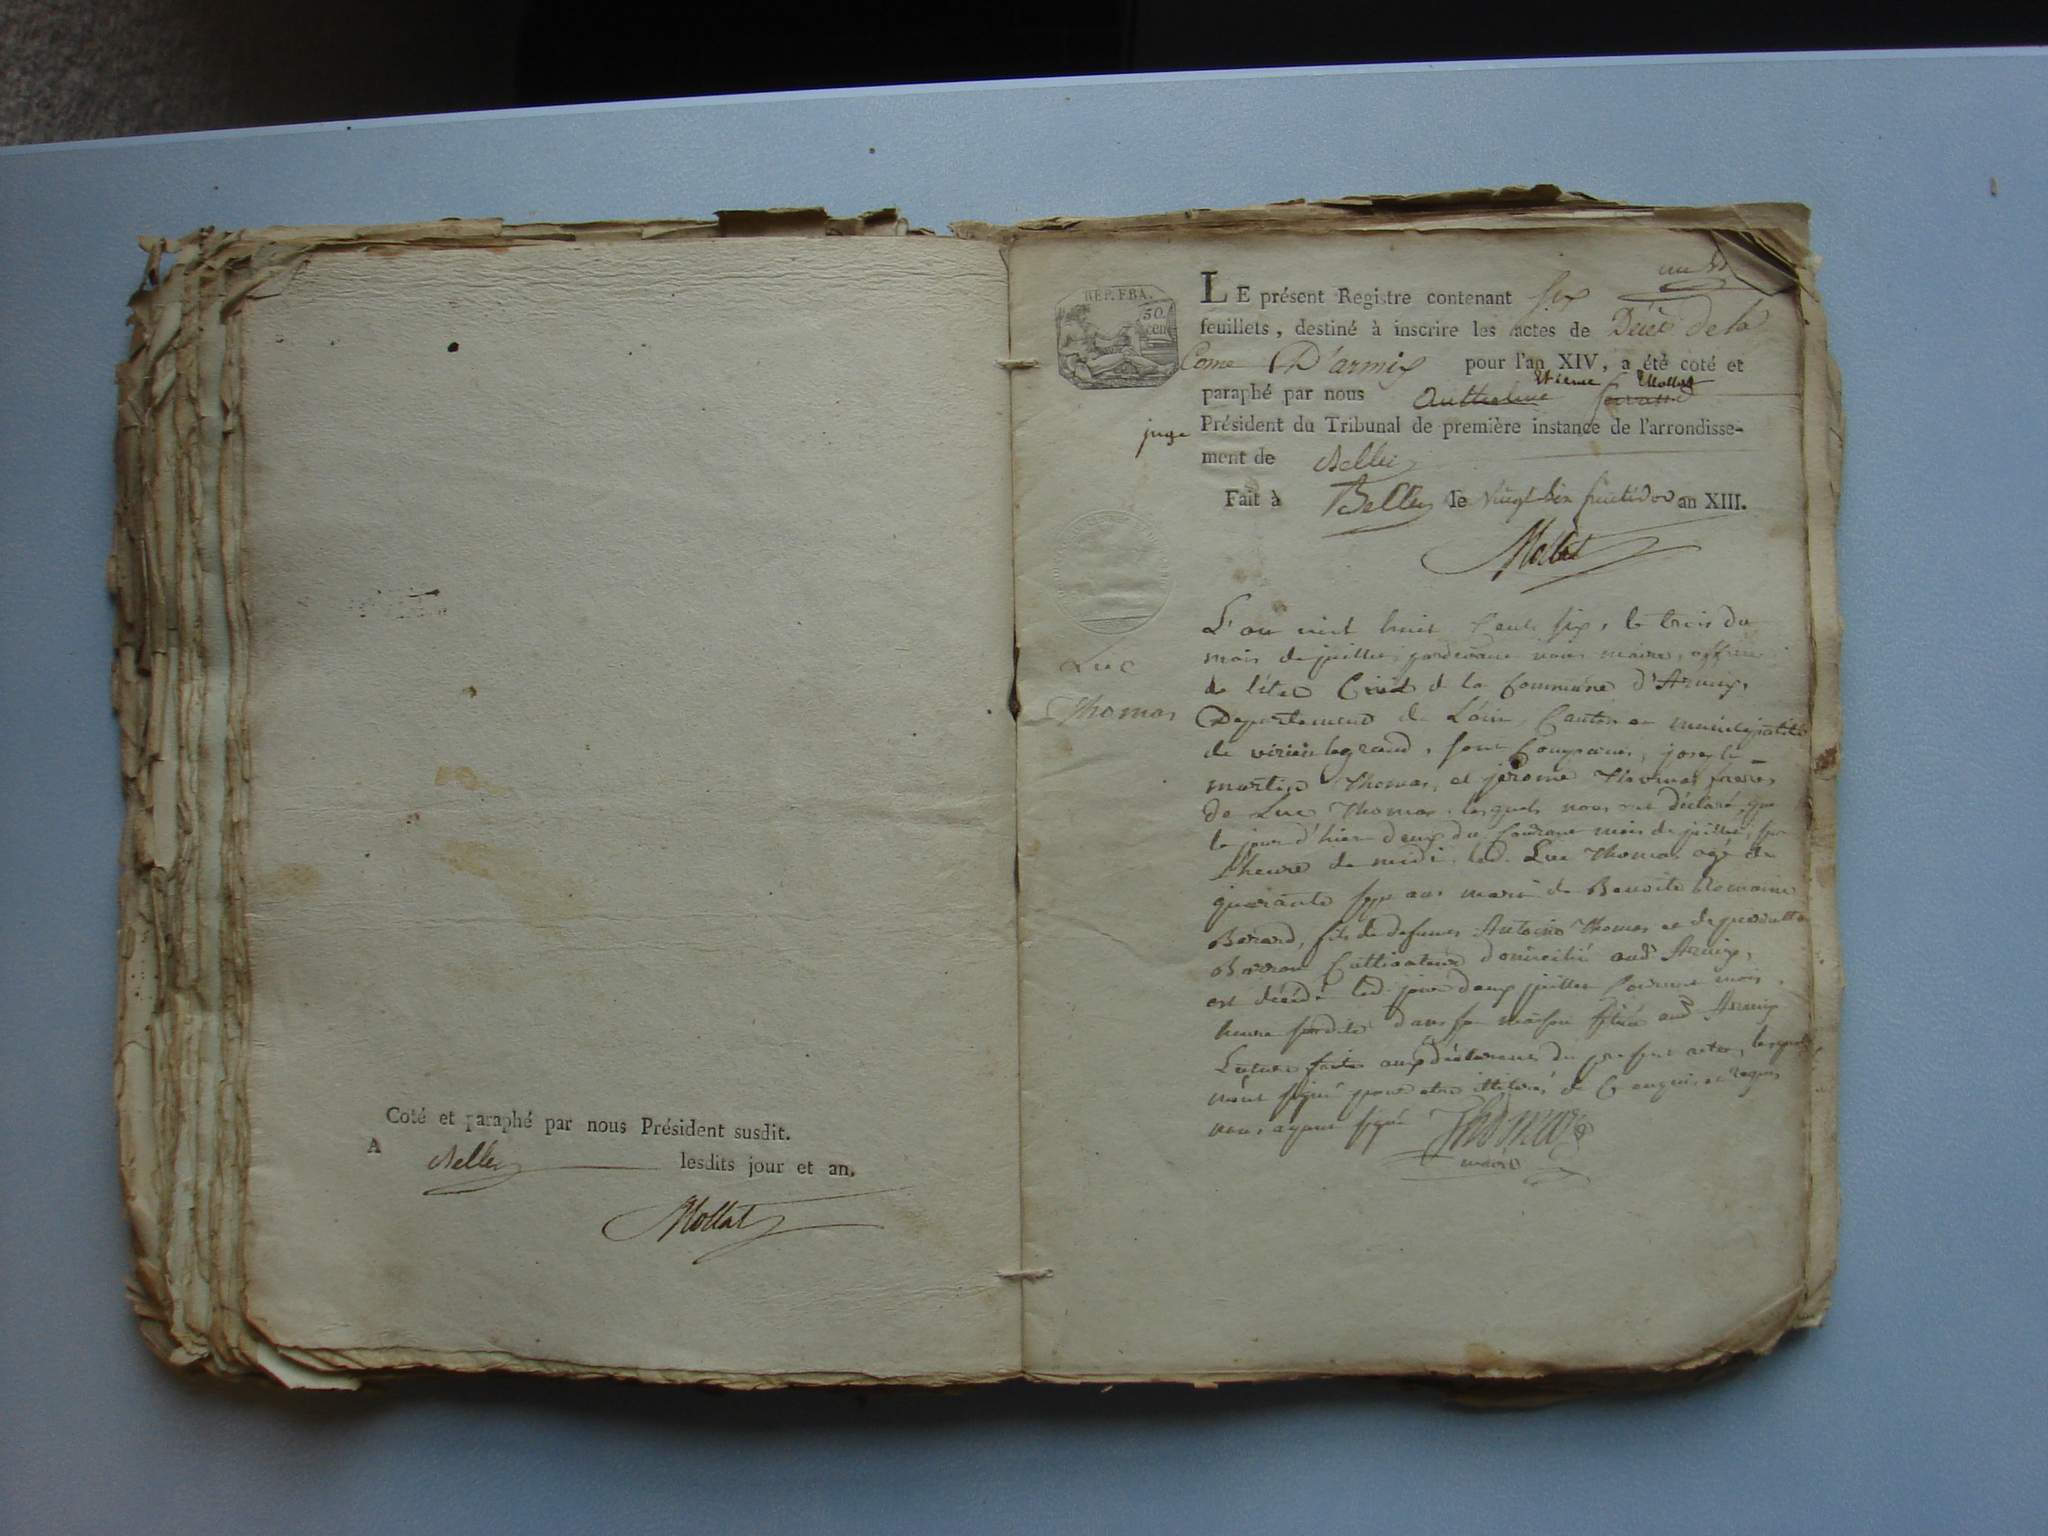 Coté et paraphé par nous Président susdit.
A Belley lesdits jour et an.
Mollat
un
REP. FRA.
50.
cen
LE présent Registre contenant six
feuillets, destiné à inscrire les actes de Décès de la
Come D'armix pour l'an XIV, a été coté et
Mollat
paraphé par nous
juge Président du Tribunal de première instance de l'arrondisse-
ment de Belley
Fait à Belley le vingt six fructidor an XIII.
Mollat
Luc
Thomas
L'an mil huit cents six, le trois du
mois de juillet, pardevant nous maire, officier
de l'état Civil de la Commune d'Armix,
Departement de L'ain, Canton et municipalité
de virieu le grand, sont Comparus, joseph
martin Thomas, et jérome Thomas freres
de Luc Thomas, lesquels nous ont déclaré que
le jour d'hier deux du Courant mois de juillet, sur
l'heure de midi, led. Luc Thomas agé de
quarante sept ans mari de Benoite Romaine
Berard, fils de defunts Antoine Thomas et de pierrette
Cultivateur domicilié aud. Armix,
est décédé led. jour deux juillet Courant mois,
heure susdite dans sa maison située aud Armix
Lecture faite aux déclarants du present acte, lesquels
n'ont signé pour etre illiterés de ce enquis et requis
nous ayant signé Thomas
maire